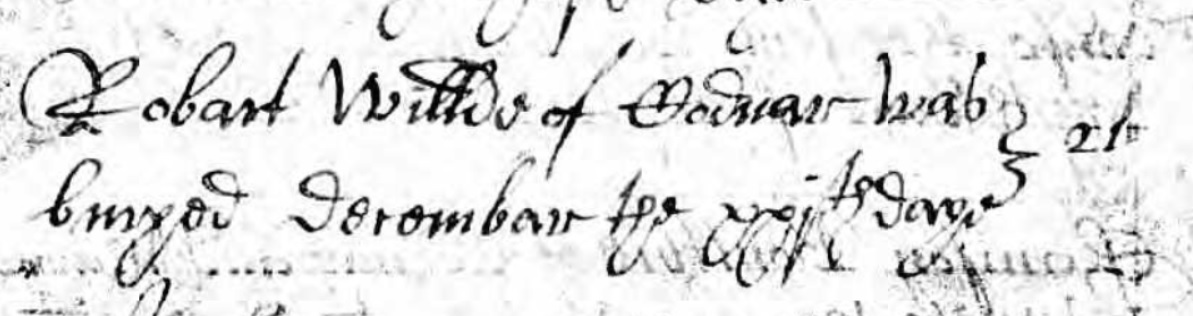 Robart Willde of Bodnar was } 21th
buryed December the xxjth daye